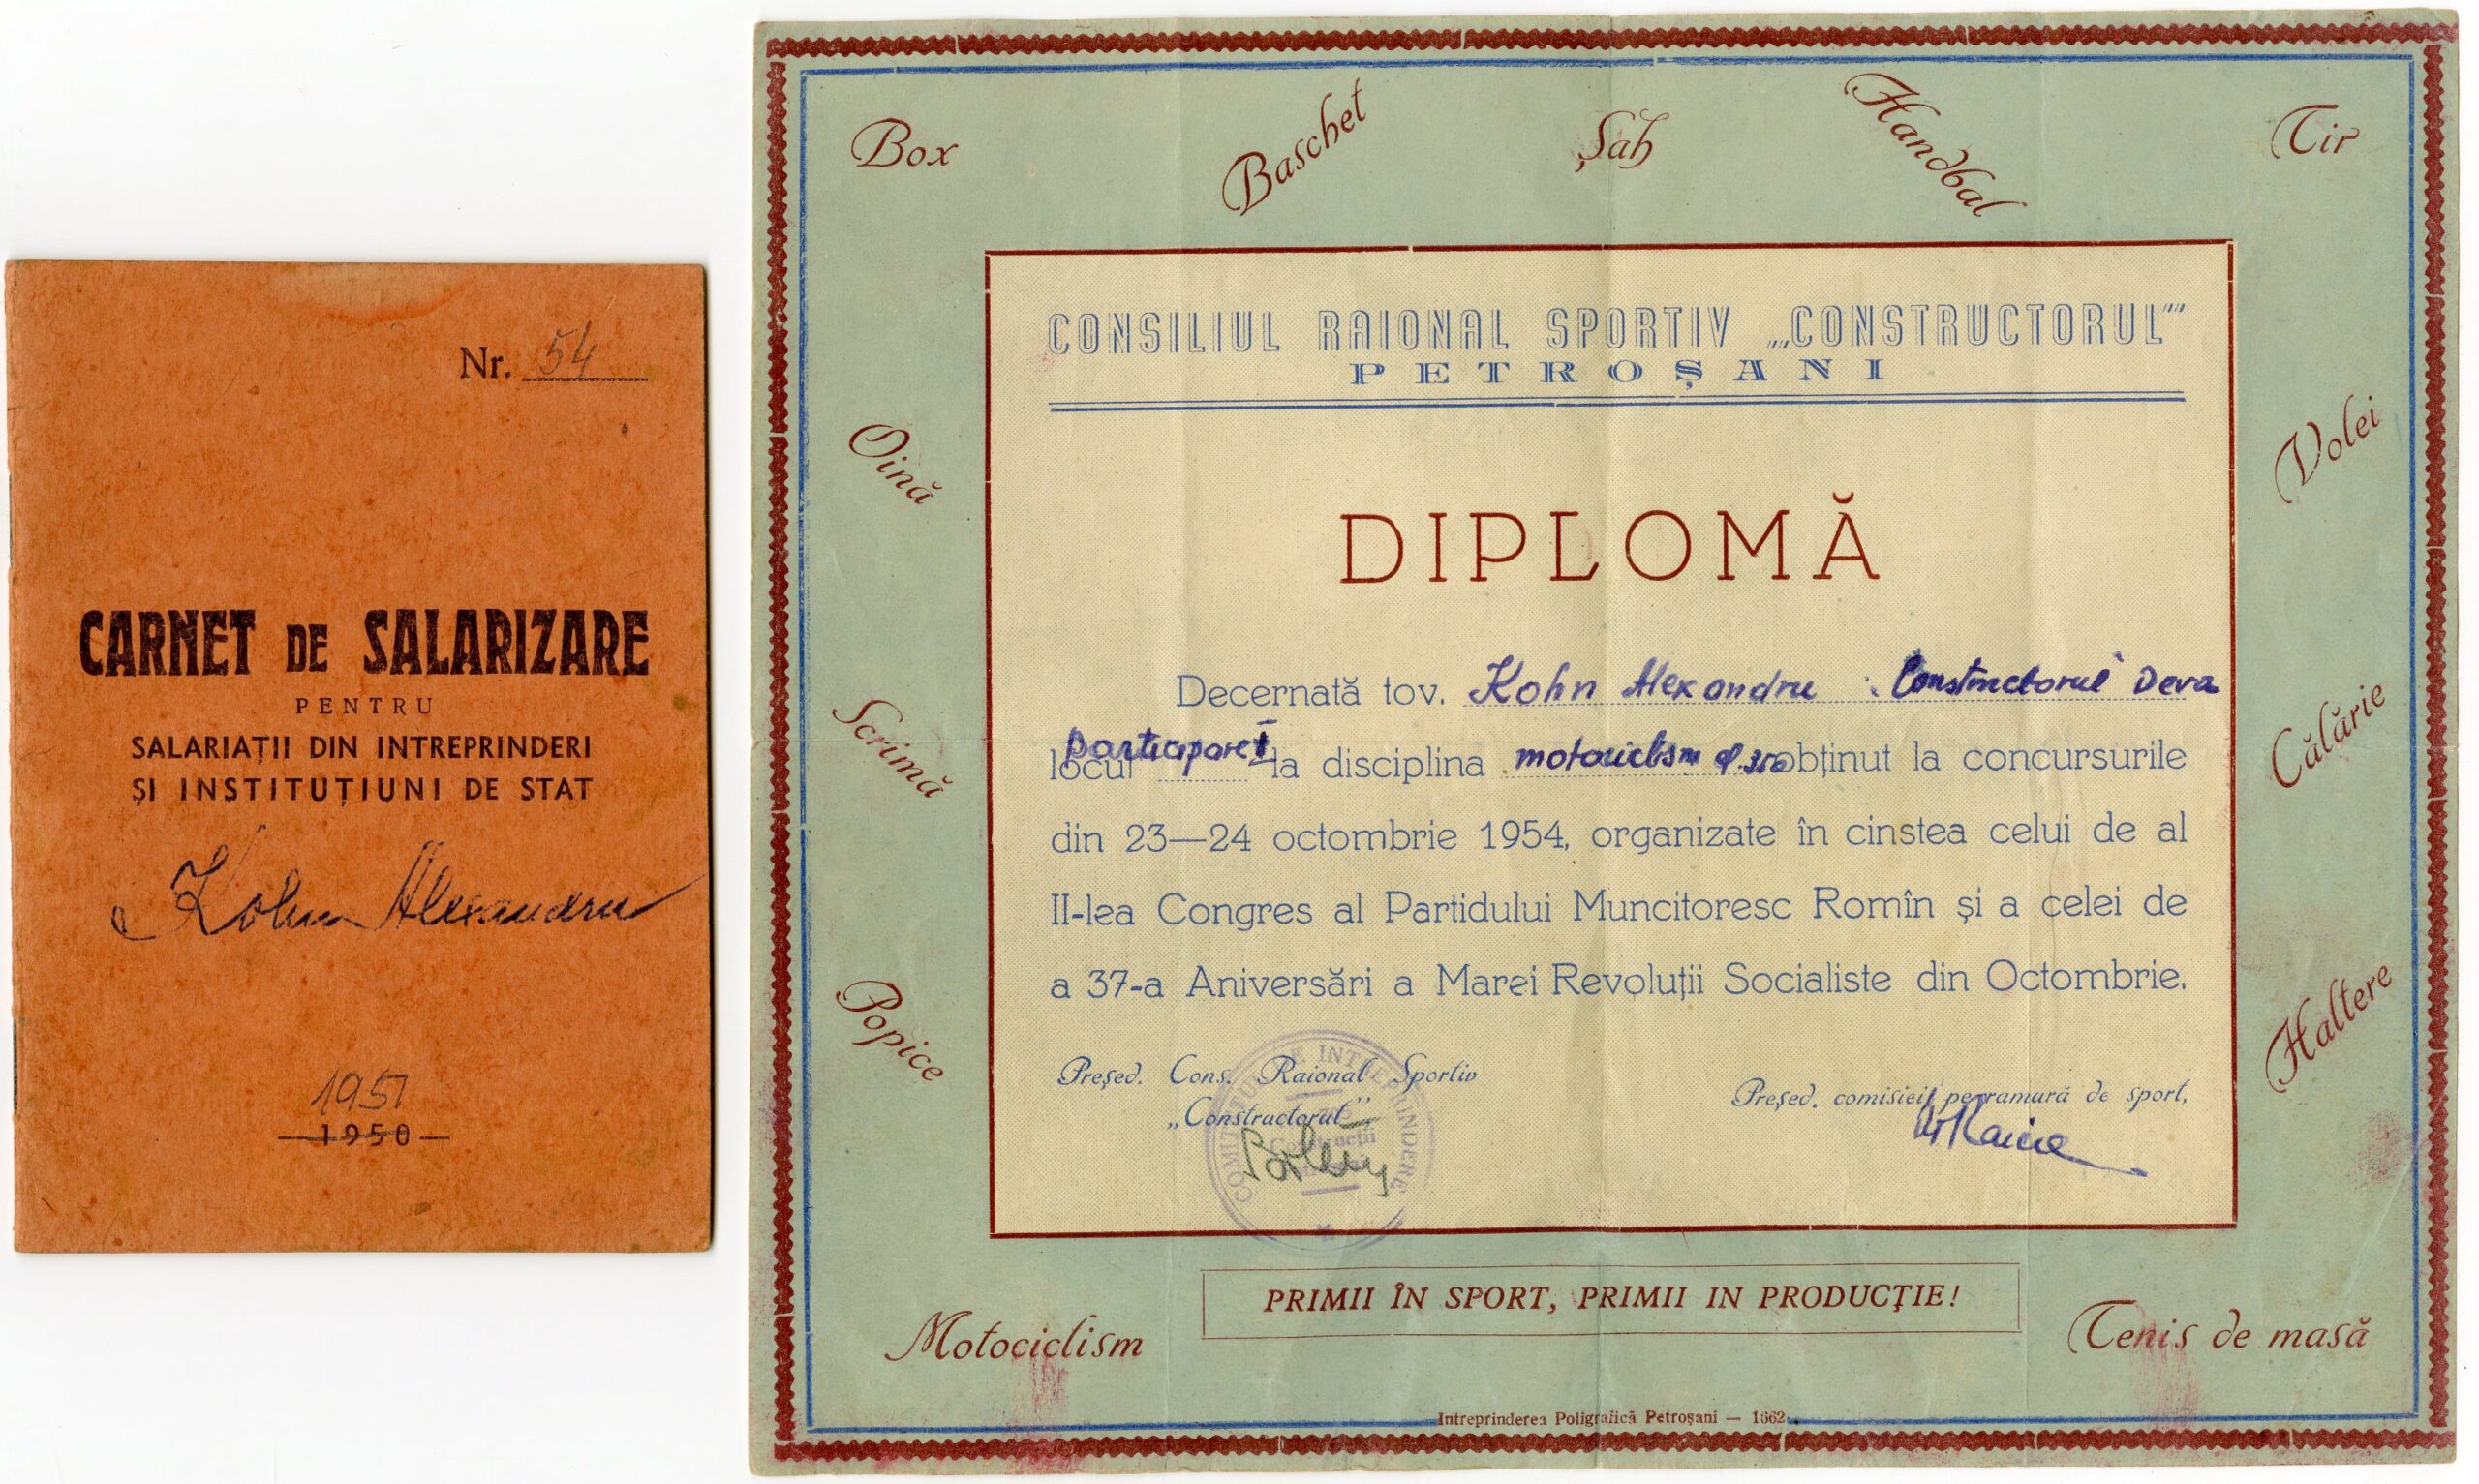 Nr. 54
CARNET DE SALARIZARE
PENTRU
SALARIAȚII DIN INTREPRINDERI
ȘI INSTITUȚIUNI DE STAT
Kohn Alexandru
1951
1950
Box
Baschet
Șah
Handbal
Tir
Oină
Volei
Scrimă
Călărie
Popice
Haltere
Motociclism
Tenis de masă
CONSILIUL RAIONAL SPORTIV „CONSTRUCTORUL”
PETROȘANI
DIPLOMĂ
Decernată tov. Kohn Alexandru Constructorul Deva
locul I la disciplina motociclism 350 obținut la concursurile
din 23—24 octombrie 1954, organizate în cinstea celui de al
II-lea Congres al Partidului Muncitoresc Romîn și a celei de
a 37-a Aniversări a Marei Revoluții Socialiste din Octombrie.
Președ. Cons. Raional Sportiv
„Constructorul”
Președ. comisiei pe ramură de sport,
PRIMII ÎN SPORT, PRIMII IN PRODUCȚIE!
Intreprinderea Poligrafică Petroșani — 1662